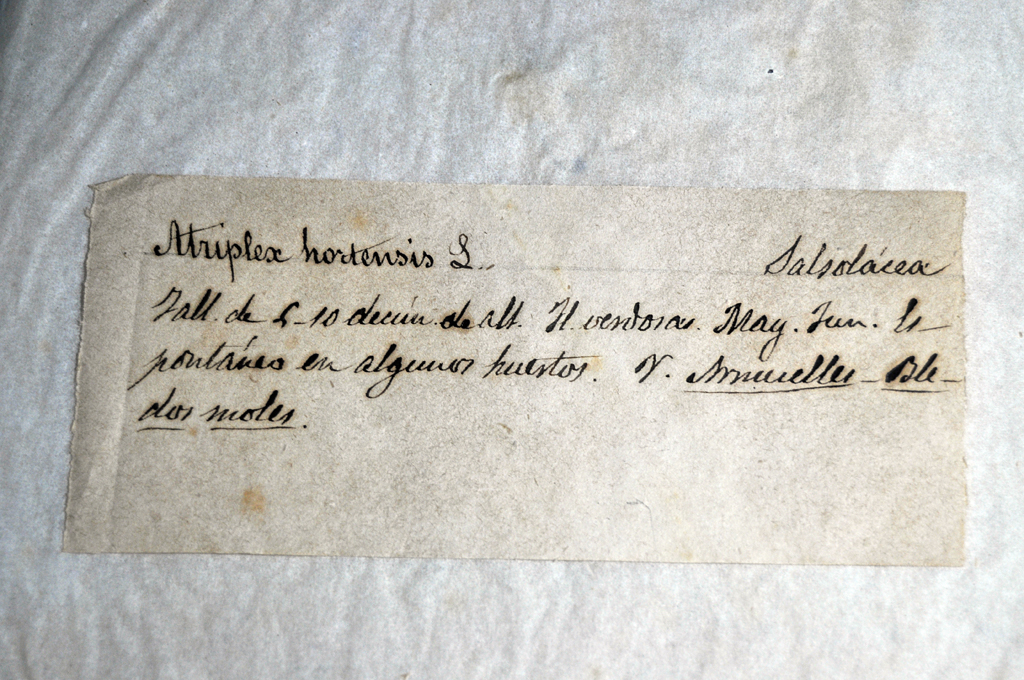 Atriplex hortensis L. Salsolácea
Tall. de 5-10 decím. de alt. Fl. verdosas. May. Jun. Es-
pontáneo en algunos huertos. V. Armuelles - Ble-
dos moles.